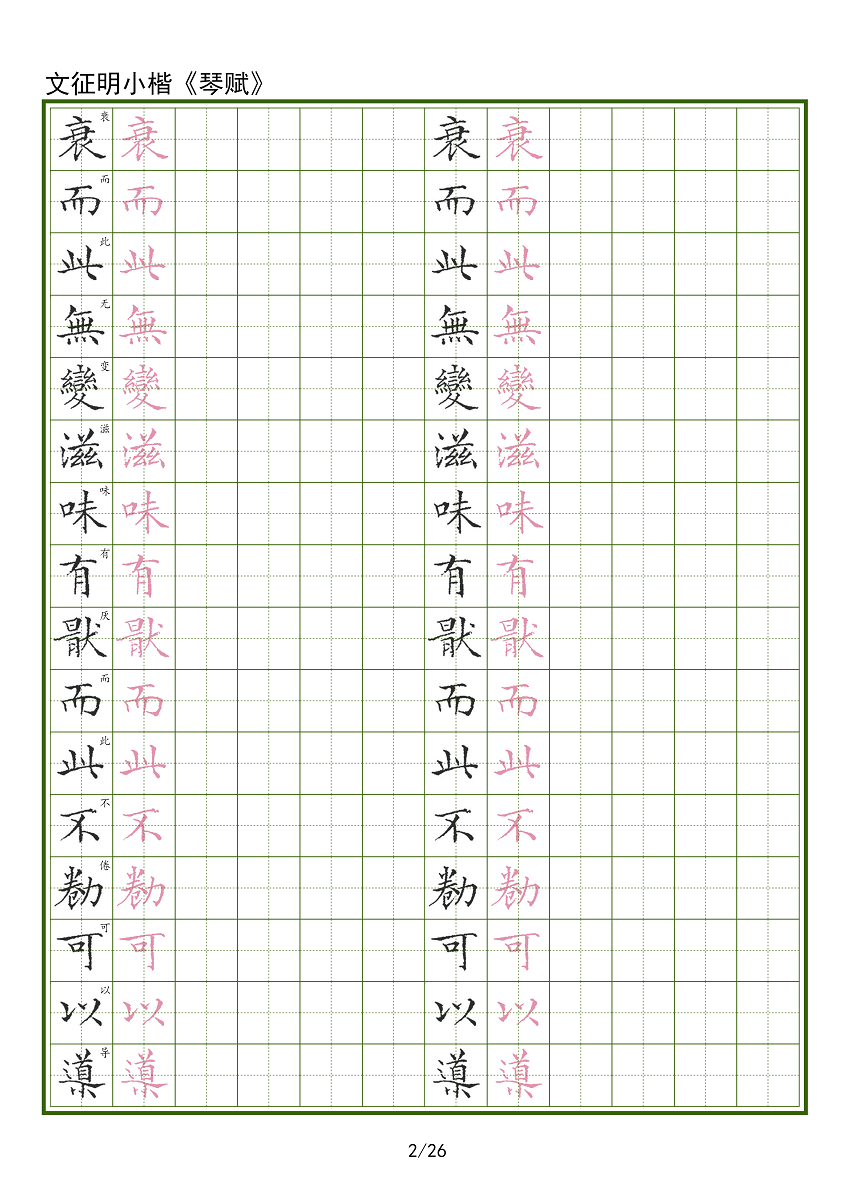 文征明小楷《琴赋》
衰 衰 衰 衰 衰
而 而 而 而 而
此 此 此 此 此
無 无 無 無 無
變 变 變 變 變
滋 滋 滋 滋 滋
味 味 味 味 味
有 有 有 有 有
猒 厌 猒 猒 猒
而 而 而 而 而
此 此 此 此 此
不 不 不 不 不
勌 倦 勌 勌 勌
可 可 可 可 可
以 以 以 以 以
導 导 導 導 導
2/26